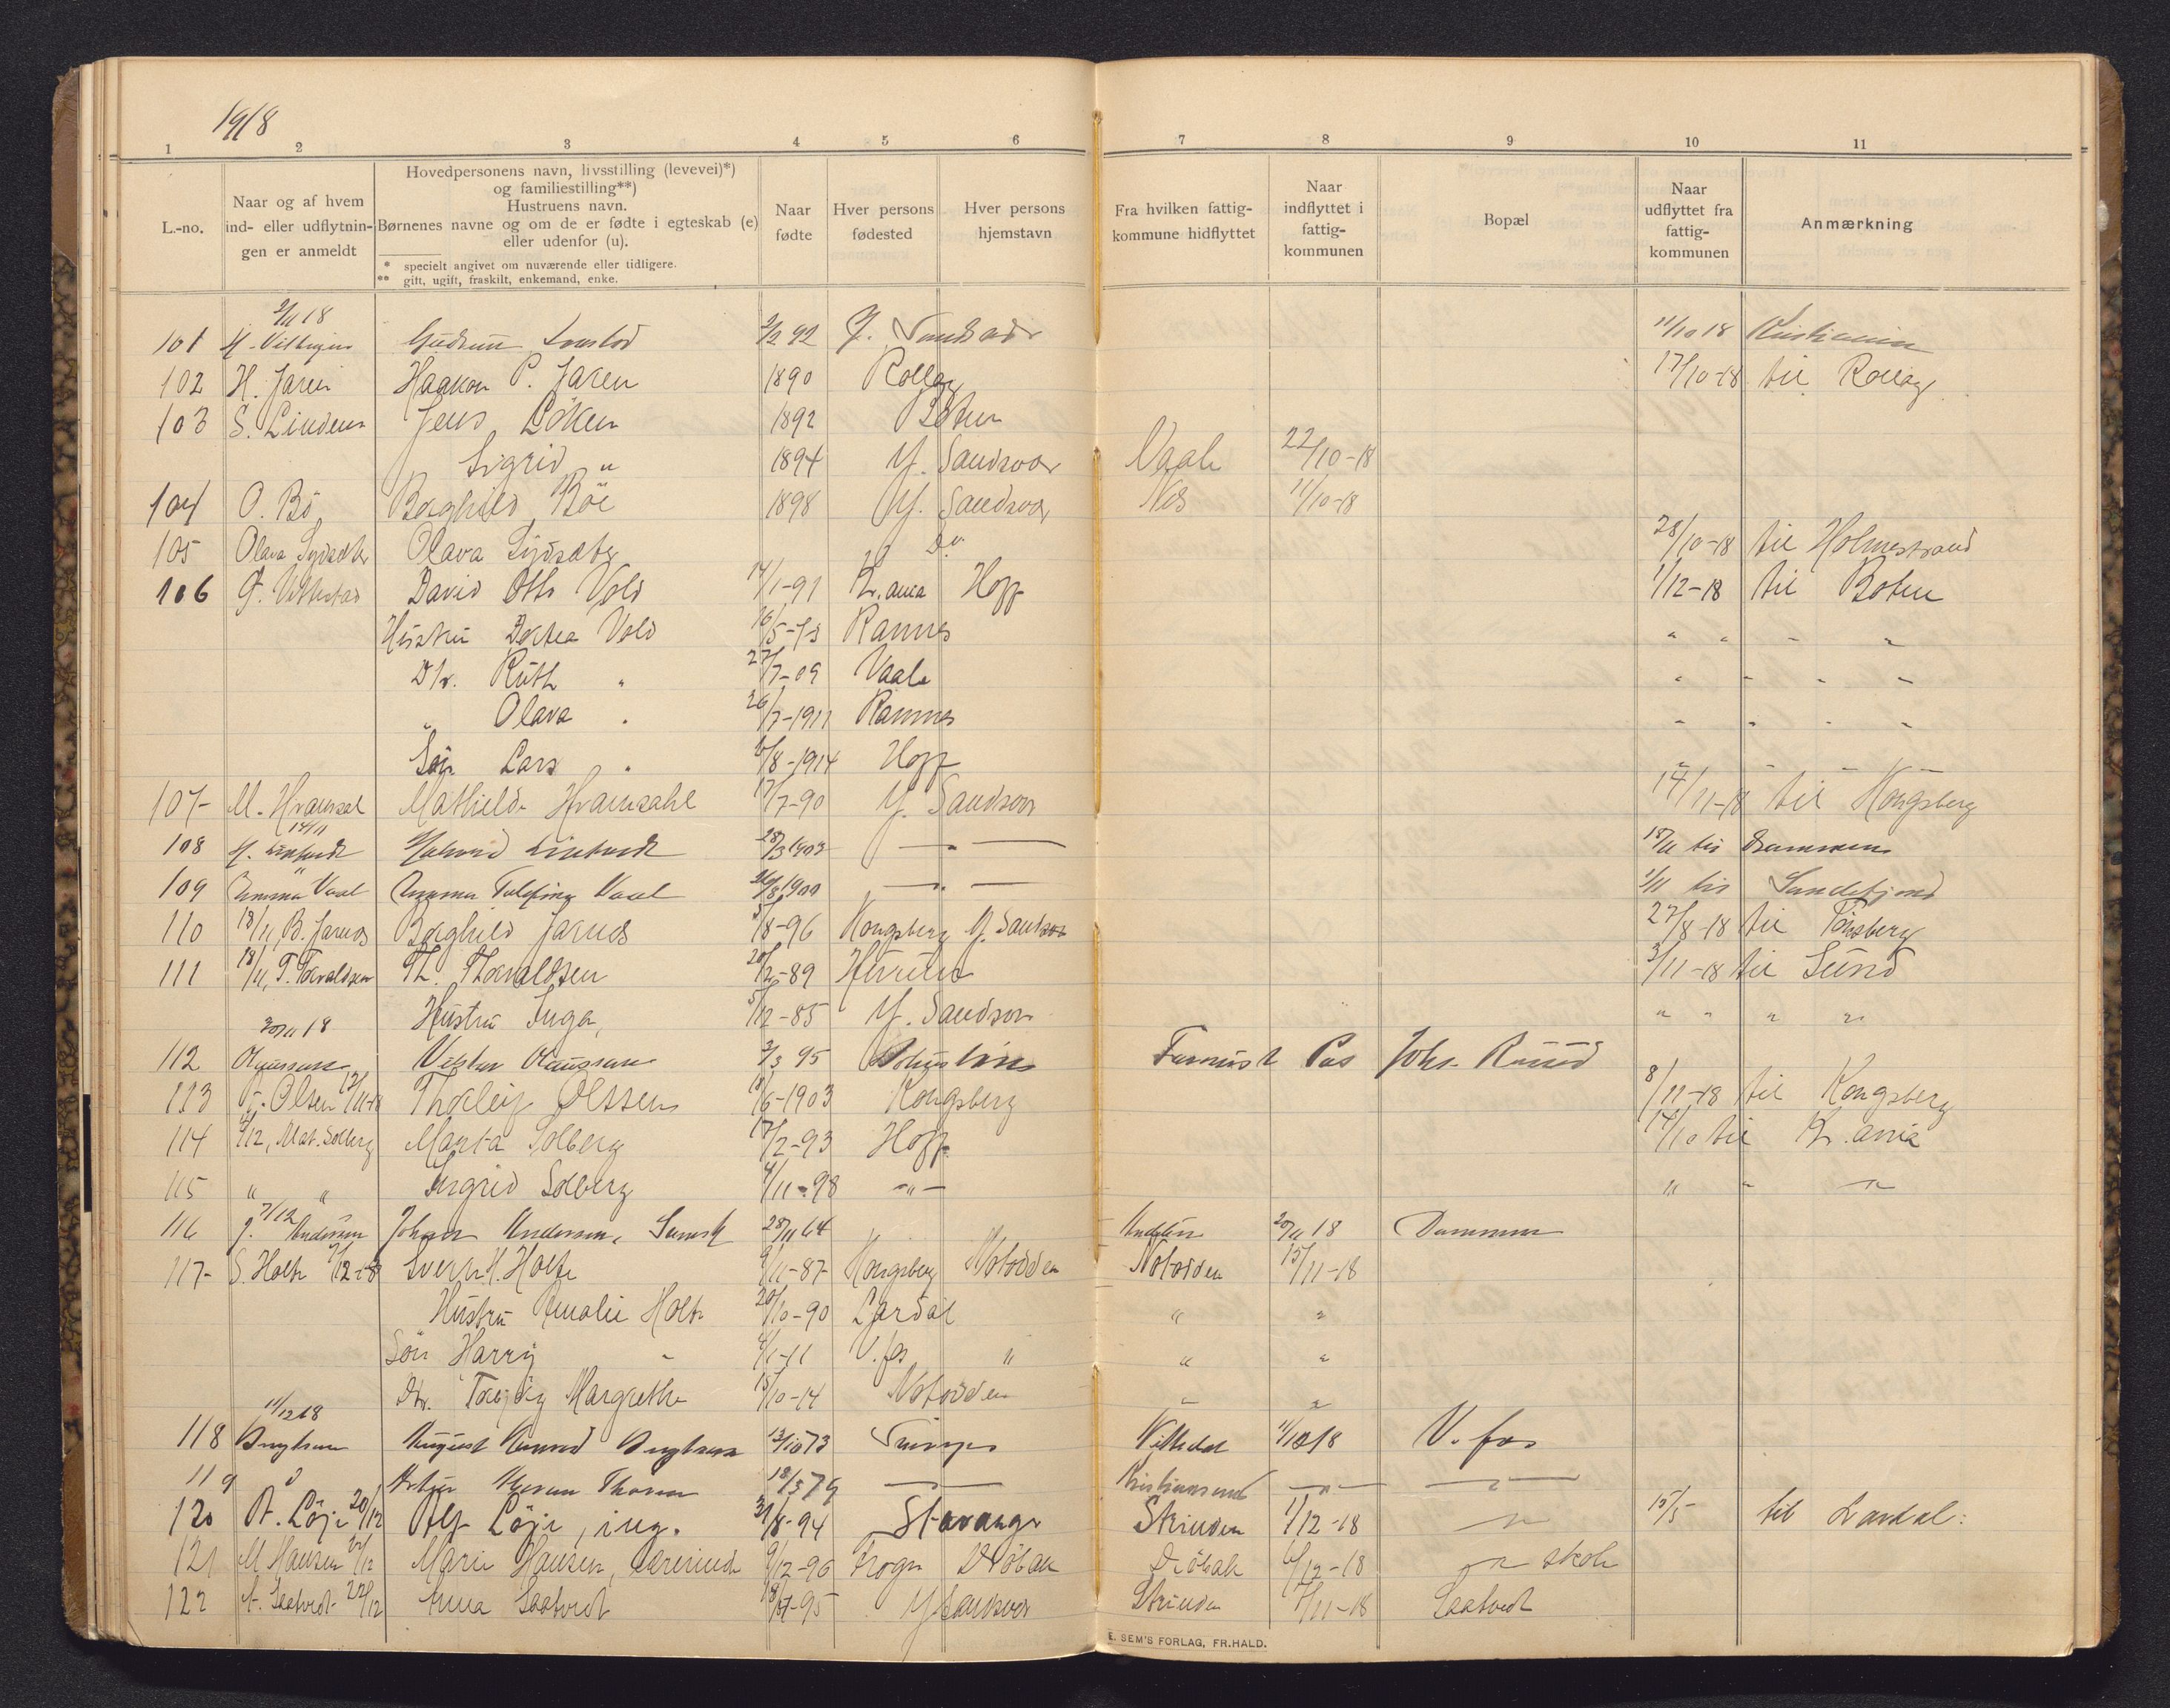 1918
1 2 3 4 5 6 7 8 9 10 11
L.-no.
Naar og af hvem
ind- eller udflytnin-
gen er anmeldt
Hovedpersonens navn, livsstilling (levevei)*)
og familiestilling**)
Hustruens navn.
Børnenes navne og om de er fødte i egteskab (e)
eller udenfor (u).
* specielt angivet om nuværende eller tidligere.
** gift, ugift, fraskilt, enkemand, enke.
Naar
fødte
Hver persons
fødested
Hver persons
hjemstavn
Fra hvilken fattig-
kommune hidflyttet
Naar
indflyttet i
fattig-
kommunen
Bopæl
Naar
udflyttet fra
fattig-
kommunen
Anmærkning
2/11 18
101 Gudrun 2/2 92 Y. Sandsvær 11/10 18 Kristiania
102 H. Jaren Haakon P. Jaren 1890 Rollag 17/10-18 til Rollag
103 S. Linden Jens Löken 1892 Botne
Sigrid " 1894 Y. Sandsvær Vaale 22/10-18
104 O. Bö Borghild Böe 1898 Y. Sandsvær Nes 11/10-18
105 Olava Olava Do 28/10-18 til Holmestrand
106 David Otto Vold 14/1-91 Kr.ania Hoff 1/12-18 til Botne
Hustru Dortea Vold 16/5- Ramnes " " " "
Dtr. Ruth " 27/7-09 Vaale " " " "
" Olava " 26/7-1911 Ramnes " " " "
Søn Lars " 6/8-1914 Hoff " " "
107- M. Hvamsal Mathilde Hvamsahl 17/7-90 Y. Sandsvær 14/11-18 til Kongsberg
14/11
108 28/3 1903 — " — 15/11 til Drammen
109 Emma Vaal Emma Vaal 1900 — " — 1/11 til Sandefjord
110 18/11, B. Jarnes Borghild Jarnes 5/8-96 Kongsberg Y. Sandsvær 27/8-18 til Tönsberg
111 18/11, T. Torvaldsen Th. Thorvaldsen 20/2-89 Hurum 3/11-18 til Lund
Hustru Inga, 5/12-85 Y. Sandsvær " " " "
30/11 18
112 Olaussen Viktor Olaussen 2/3 95 Pas Johs. Ruud
113 T. Olsen 12/11-18 Thorleif Olssen 18/6-1903 Kongsberg 8/11-18 til Kongsberg
114 Mat. Solberg Marta Solberg 17/2-93 Hoff 14/10 til Kr.ania
115 " " Ingrid Solberg 4/11-98 -"- " " "
7/12
116 J. Andersen Johan Andersen, Svensk 28/11 64 20/11 18
117- S. Holte 9/12-18 Sverre H. Holte 9/11-87 Kongsberg Notodden Notodden 15/11-18
Hustru Amalie Holte 20/10-90 Lardal " "
Sön Harry " 4/1-11 V.fos " " "
Dtr. Margrethe 15/10-14 Notodden " "
11/12 18
118 August 13/10 73 11/12 18 V. fos
119 " Thoresen 18/3 79 — Kristiansund — " — — " —
120 A. Löje 20/12 Alf Löje, ing. 31/8-94 Stavanger Strinden 1/12-18 " 15/5- til Lardal:
121 M Hansen 21/12 Marie Hansen, lærerinde 9/12-96 Frogn Dröbak Dröbak 6/12-18 " skole
122 A. Saatvedt 22/12 Anna Saatvedt 18/7-95 Y Sandsvær Strinden 7/11-18 Saatvedt
E. SEM'S FORLAG, FR.HALD.